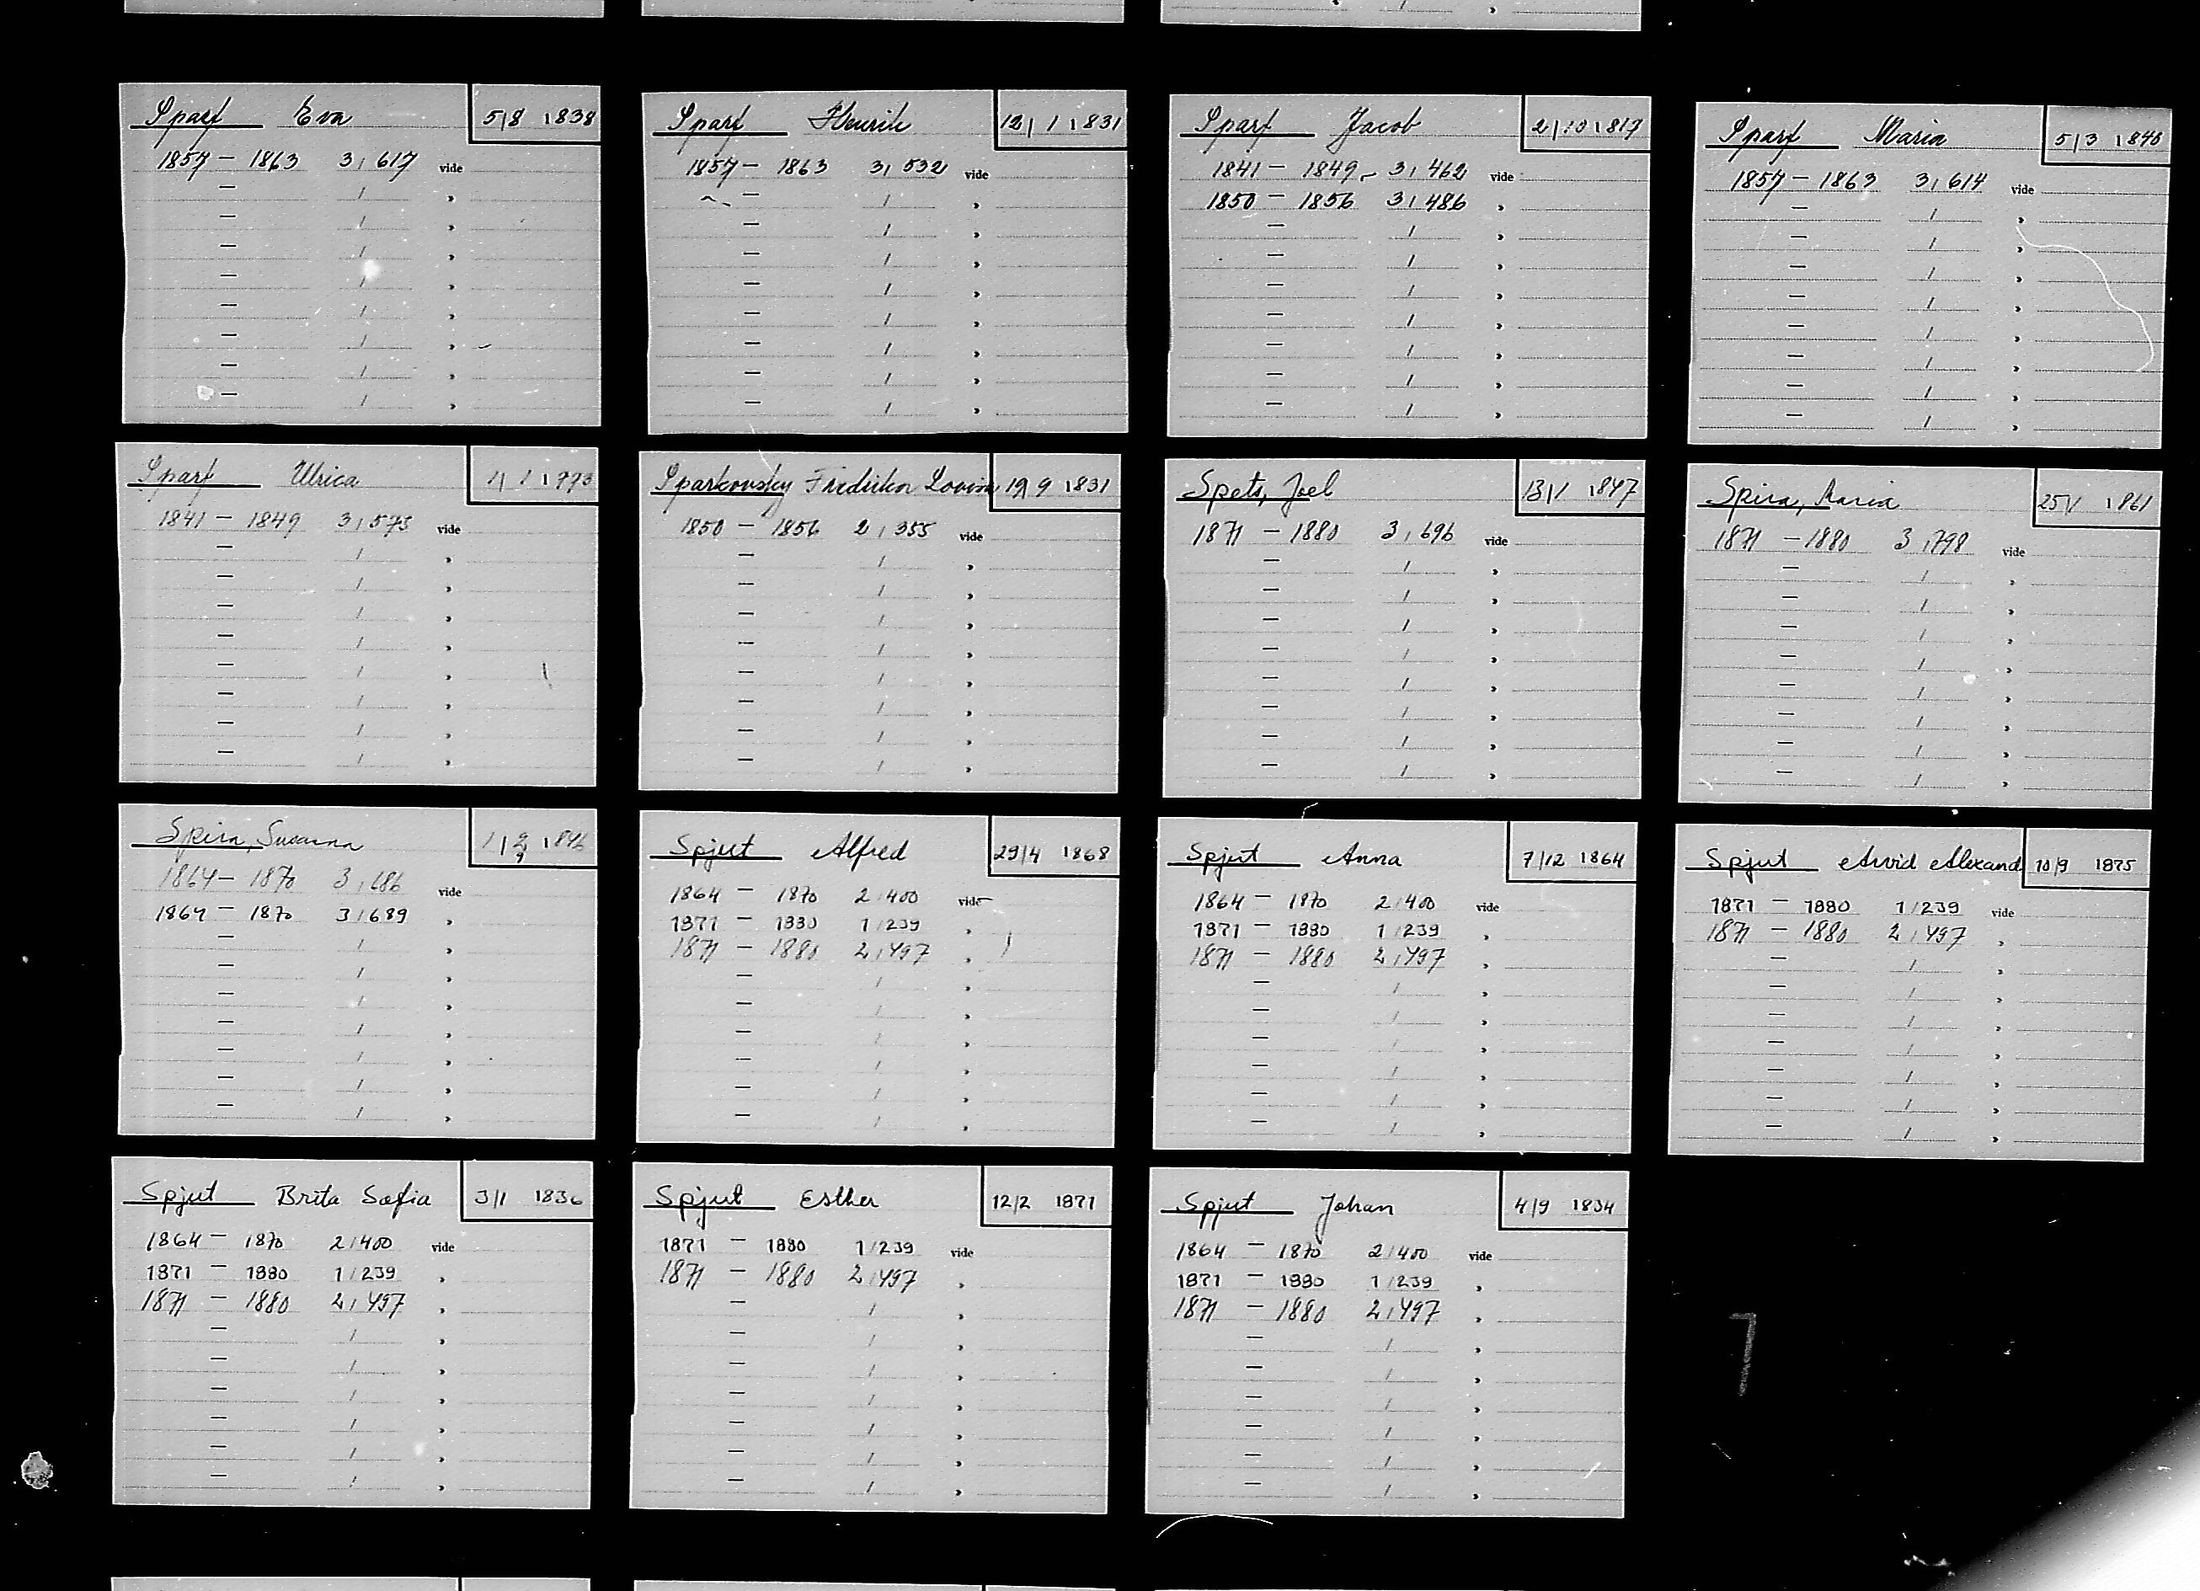 Sparf Eva 5/8 1838
1857 – 1863 3/617 vide
Sparf Henrik 12/1 1831
1857 – 1863 3/532 vide
Sparf Jacob 2/10 1817
1841 – 1849 3/462 vide
1850 – 1856 3/486
Sparf Maria 5/3 1840
1857 – 1863 3/614 vide
Sparf Ulrica
1841 – 1849 3/573 vide
Sparkovsky Fredrika Lovisa 19/9 1831
1850 – 1856 2/355 vide
Spets, Joel 13/1 1847
1871 – 1880 3/696 vide
Spira, Maria 25/1 1861
1871 – 1880 3/798 vide
Spira, Susanna 1846
1864 – 1870 3/686 vide
1864 – 1870 3/689
Spjut Alfred 29/4 1868
1864 – 1870 2/400 vide
1871 – 1880 1/239
1871 – 1880 2/497
Spjut Anna 7/12 1864
1864 – 1870 2/400 vide
1871 – 1880 1/239
1871 – 1880 2/497
Spjut Arvid Alexand 10/9 1875
1871 – 1880 1/239 vide
1871 – 1880 2/497
Spjut Brita Sofia 3/1 1836
1864 – 1870 2/400 vide
1871 – 1880 1/239
1871 – 1880 2/497
Spjut Esther 12/2 1871
1871 – 1880 1/239 vide
1871 – 1880 2/497
Spjut Johan 4/9 1834
1864 – 1870 2/400 vide
1871 – 1880 1/239
1871 – 1880 2/497